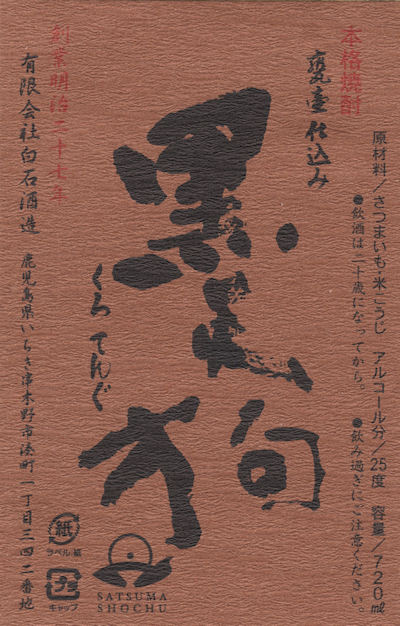 本格焼酎
甕壷仕込み
原材料/さつまいも・米こうじ アルコール分/25度 容量/720㎖
●飲酒は二十歳になってから。 ●飲み過ぎにご注意ください。
黒天狗
くろ てんぐ
創業明治二十七年
有限会社白石酒造
鹿児島県いちき串木野市湊町一丁目三四二番地
紙
ラベル 紙
プラ
キャップ
SATSUMA
SHOCHU